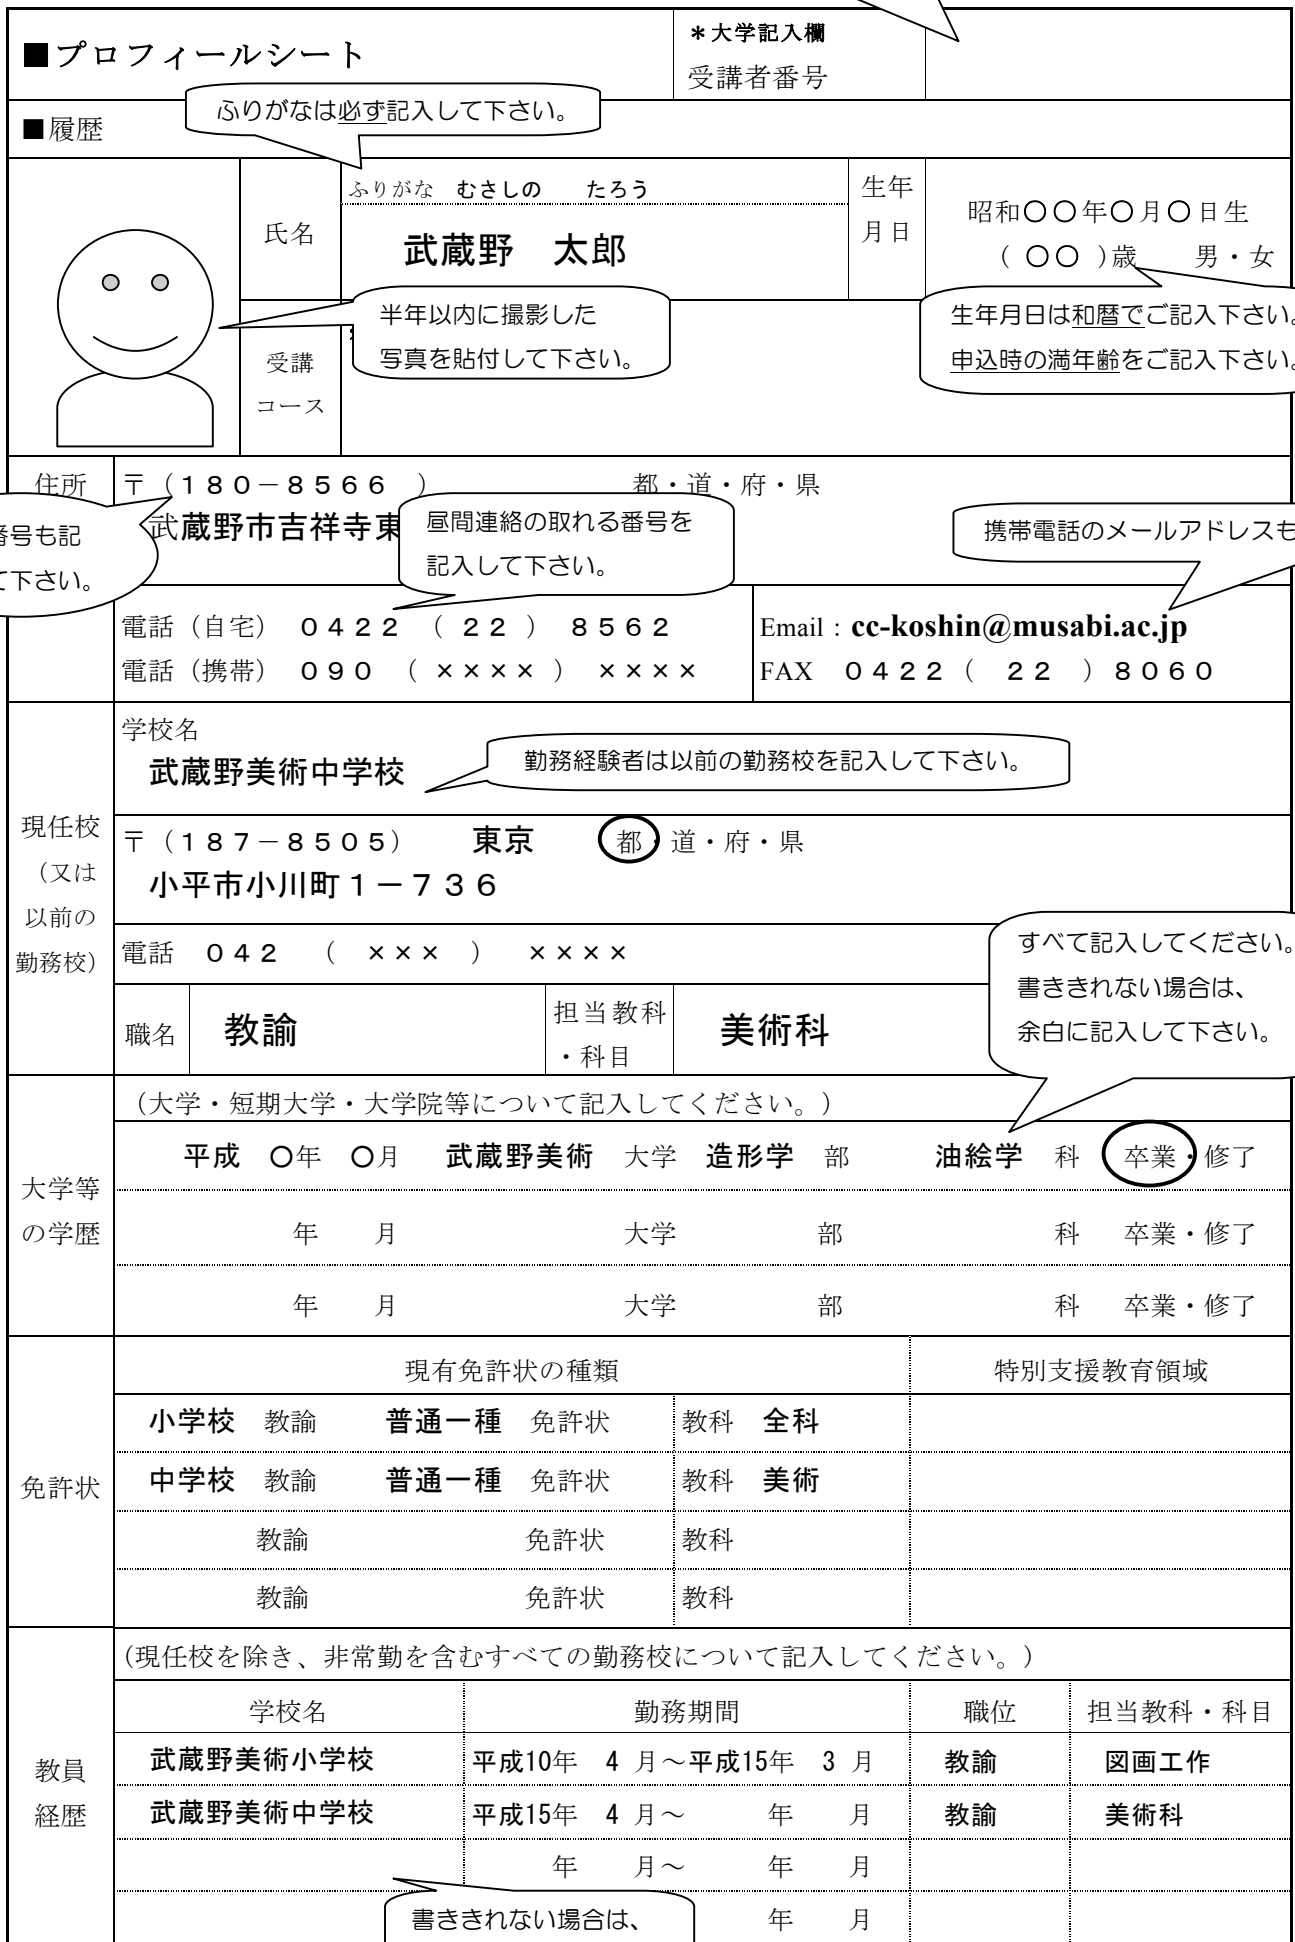 ■プロフィールシート
＊大学記入欄
受講者番号
ふりがなは必ず記入して下さい。
■履歴
ふりがな むさしの たろう
氏名
武蔵野 太郎
生年
月日
昭和〇〇年〇月〇日生
( 〇〇 )歳 男・女
半年以内に撮影した
写真を貼付して下さい。
生年月日は和暦でご記入下さい。
申込時の満年齢をご記入下さい。
受講
コース
住所
〒（１８０－８５６６ ） 都・道・府・県
武蔵野市吉祥寺東
番号も記
て下さい。
昼間連絡の取れる番号を
記入して下さい。
携帯電話のメールアドレスも
電話（自宅） ０４２２ （ ２２ ） ８５６２
電話（携帯） ０９０ （ ×××× ） ××××
Email：cc-koshin@musabi.ac.jp
FAX ０４２２（ ２２ ）８０６０
現任校
（又は
以前の
勤務校）
学校名
武蔵野美術中学校
勤務経験者は以前の勤務校を記入して下さい。
〒（１８７－８５０５） 東京 都・道・府・県
小平市小川町１－７３６
電話 ０４２ （ ××× ） ××××
すべて記入してください。
書ききれない場合は、
余白に記入して下さい。
職名 教諭
担当教科
・科目
美術科
大学等
の学歴
（大学・短期大学・大学院等について記入してください。）
平成 〇年 〇月 武蔵野美術 大学 造形学 部 油絵学 科 卒業・修了
年 月 大学 部 科 卒業・修了
年 月 大学 部 科 卒業・修了
免許状
現有免許状の種類 特別支援教育領域
小学校 教諭 普通一種 免許状 教科 全科
中学校 教諭 普通一種 免許状 教科 美術
教諭 免許状 教科
教諭 免許状 教科
教員
経歴
（現任校を除き、非常勤を含むすべての勤務校について記入してください。）
学校名 勤務期間 職位 担当教科・科目
武蔵野美術小学校 平成10年 4 月～平成15年 3 月 教諭 図画工作
武蔵野美術中学校 平成15年 4 月～ 年 月 教諭 美術科
年 月～ 年 月
年 月
書ききれない場合は、